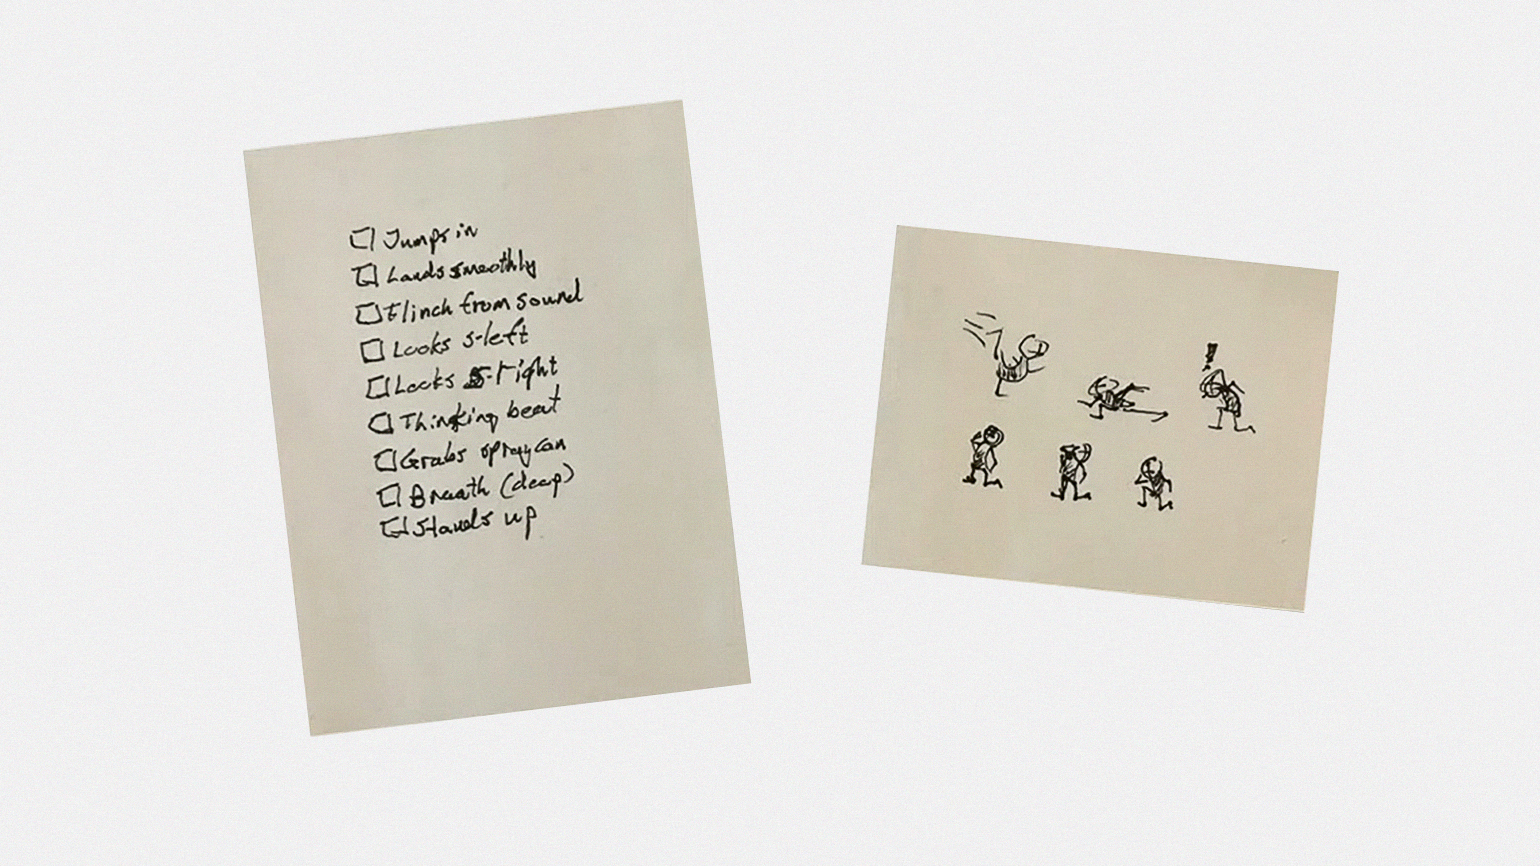 Jumps in
Lands smoothly
Flinch from sound
Looks s-left
Looks s-right
Thinking beat
Grabs spraycan
Breath (deep)
Stands up
!